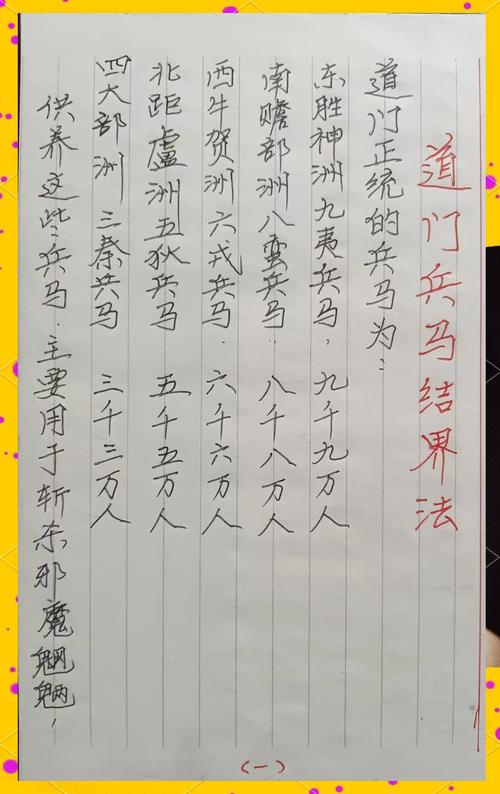 道门兵马结界法
道门正统的兵马为：
东胜神洲九夷兵马，九千九万人
南赡部洲八蛮兵马．八千八万人
西牛贺洲六戎兵马．六千六万人
北距盧洲五狄兵马 五千五万人
四大部洲 三秦兵马 三千三万人
供养这些兵马．主要用于斩杀邪魔魍魉，
（一）